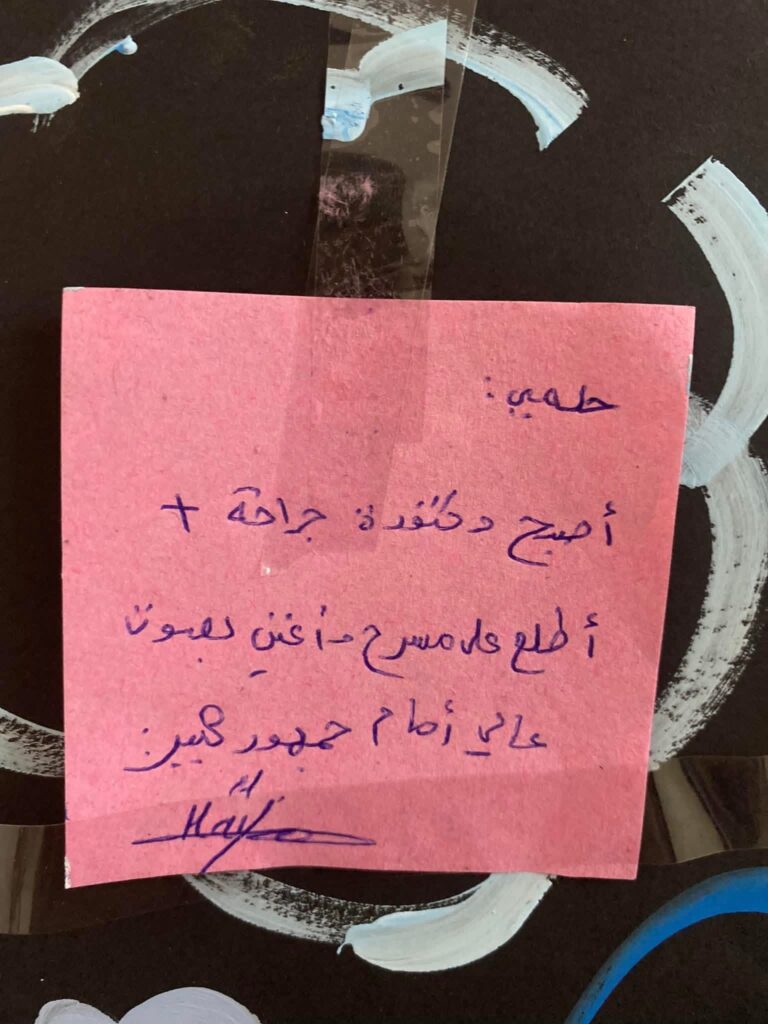 حلمي:
أصبح دكتورة جراحة +
أطلع على مسرح وأغني بصوت
عالي أمام جمهور كبير.